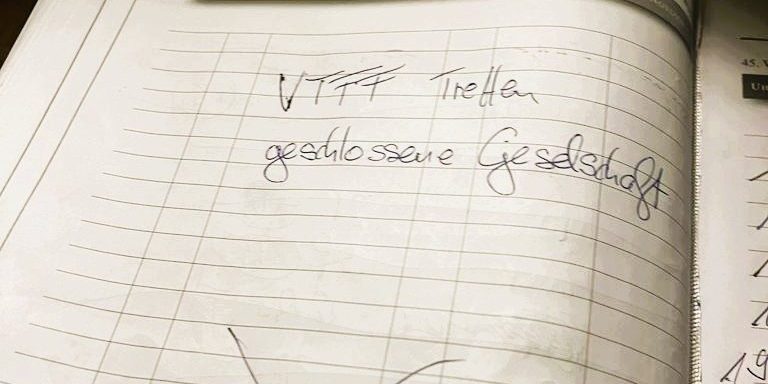 VTFF Treffen
geschlossene Geselschaft
45. 
19